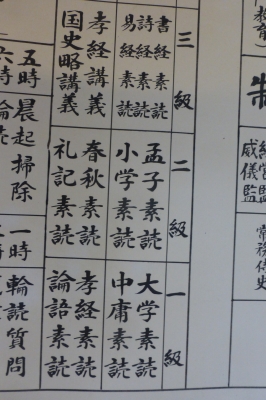 制
威儀監
常務侍史
三級
書経素読
詩経素読
易経素読
孝経講義
国史略講義
二級
孟子素読
小学素読
春秋素読
礼記素読
一級
大学素読
中庸素読
孝経素読
論語素読
五時 晨起掃除
六時
一時 輪読質問